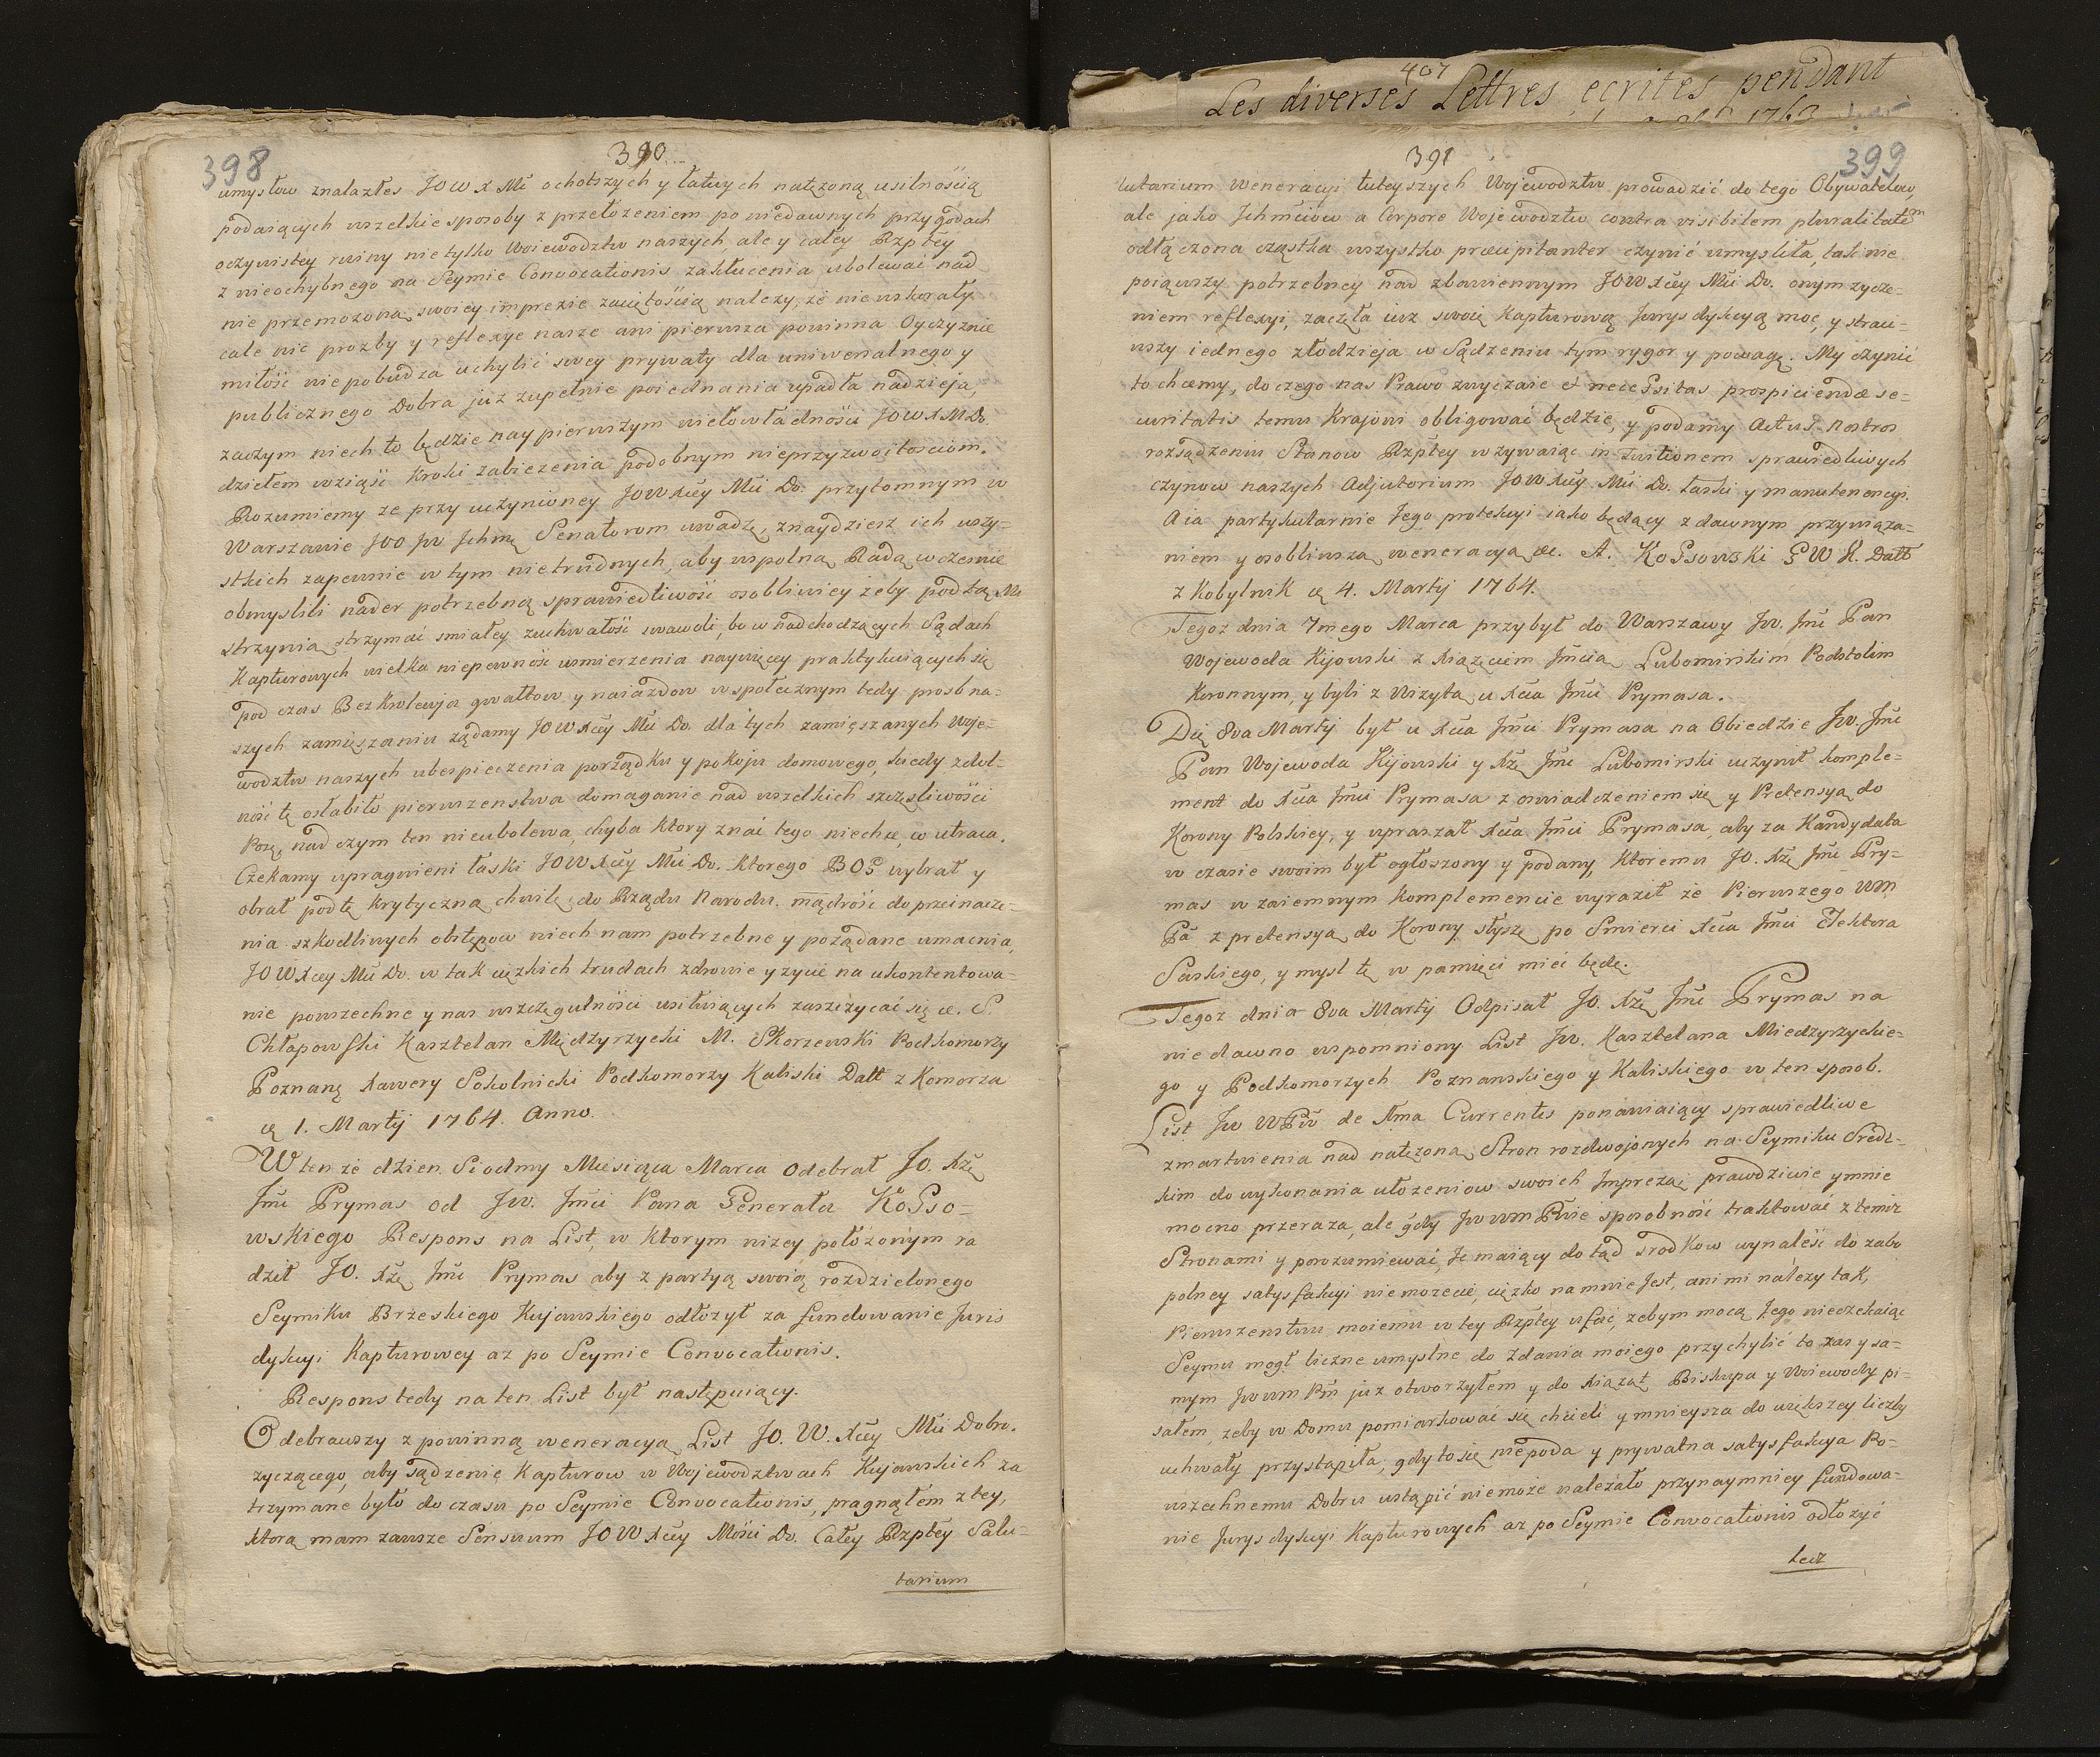 398
390
umysłow znalazłes JOWX Mć ochotszych y łatwych natęzoną usilnością
podaiących wszelkie sposoby z przełozeniem po niedawnych przygodach
oczywistey ruiny nie tylko Woiewodztw naszych ale y całey Rzpltey
z nieochybnego na Seymie Convocationis zakłucenia ubolewać nad
nie przemozoną swoiey imprezie zawziętością nalezy, ze nie wskorały
cale nic prozby y reflexye nasze ani pierwsza powinna Oyczyznie
miłość nie pobudza uchylić swey prywaty dla uniwersalnego y
publicznego Dobra juz zupełnie poiednania upadła nadzieja,
zaczym niech to będzie naypierwszym wielowładności JOWXM Do.
dziełem wziąść kroki zabiezenia podobnym nieprzyzwoitościom.
Rozumiemy ze przy uczynioney JOWXcey Mci Do. przytomnym w
Warszawie JOO JW Ichmę Senatorom uwadze, znaydziesz ich wszy-
stkich zapewnie w tym nietrudnych, aby wspolną Radą wczesnie
obmyslili nader potrzebną sprawiedliwość osobliwiey żeby pod tą Mi
strzynią strzymać smiałey zuchwałość swawoli, bo w nadchodzących Sądach
Kapturowych wielka niepewność usmierzenia naywięcey praktykuiących się
pod czas Bezkrolewja gwałtow y naiazdow w społecznym tedy prosb na-
szych zamięszaniu ządamy JOWXcey Mci Do. dla tych zamięszanych Woje-
wodztw naszych ubespieczenia porządku y pokoju domowego, kiedy zdol-
ność tę osłabiło pierwszenstwa domaganie nad wszelkich szczęśliwości
Porę, nad czym ten nieubolewa, chyba ktory znać tego niechce, w utraca.
Czekamy upragnieni łaski JOWXcey Mci Do. ktorego BOG wybrał y
obrał pod tę krytyczną chwilę do Rządu Narodu. mądrość do przeinacze-
nia szkodliwych obstępow niech nam potrzebne y poządane umacnia,
JOWXcey Mci Do. w tak cięzkich trudach zdrowie y zycie na ukontentowa-
nie powszechne y nas wszczegulności usiłuiących zaszczycać się &c. S.
Chłapowski Kasztelan Międzyrzycki M. Skorzewski Podkomorzy
Poznanę Xawery Sokolnicki Podkomorzy Kaliski Datt z Komorza
ą 1. Martij 1764. Anno.
W tenże dzien Siodmy Miesiąca Marca odebrał JO. Xżę
Jmć Prymas od Jw. Jmci Pana Generała Kosso-
wskiego Respons na List, w ktorym nizey połozonym ra
dził JO. Xżę Jmć Prymas aby z partyą swoią rozdzielonego
Seymiku Brzeskiego Kujawskiego odłozył za fundowanie Juris
dykcyi Kapturowey az po Seymie Convocationis.
Respons tedy na ten List był następuiący.
Odebrawszy z powinną weneracyą List JO. W. Xcey Mci Dobro.
zyczącego, aby sądzenie Kapturow w Wojewodztwach Kujawskich za
trzymane było do czasu po Seymie Convocationis, pragnąłem z tey,
ktorą mam zawsze Sensuum JOWXcey Mości Do. Całey Rzpltey Salu-
tarium
407
Les diverses Lettres ecrites pendant
1763
391
399
lutarium weneracyi tuteyszych Wojewodztw prowadzić do tego Obywatelow,
ale jako Ichmciow a Corpore Wojewodztw contra visibilem pluralitatem
odłączona cząstka wszystko praecipitanter czynić umysliła, tak nie
poiąwszy potrzebney nad zbawiennym JOWXcey Mci Do. onym zycze-
niem reflexyi, zaczęła juz swoię Kapturową Jurysdykcyą moc, y straci-
wszy iednego złodzieja w Sądzeniu tym rygor y powagę. My czynić
to chcemy, do czego nas Prawo zwyczaie et necessitas prospiciendae se-
curitatis temu Krajowi obligować będzie, y podamy Actus nostros
rozsądzeniu Stanow Rzpltey wzywaiąc in tuitionem sprawiedliwych
czynow naszych Adjutorium JOWXcey Mci Do. łaski y manutenencyi.
A ia partykularnie Jego protekcyi iako będący z dawnym przywiąza-
niem y osobliwszą weneracyą &c. A. Kossowski G W K. Datt
z Kobylnik ą 4. Martij 1764.
Tegoz dnia 7mego Marca przybył do Warszawy Jw. Jmć Pan
Wojewoda Kijowski z Xiązęciem Jmcią Lubomirskim Podstolim
Koronnym, y byli z Wizytą u Xcia Jmci Prymasa.
Dię 8va Martij był u Xcia Jmci Prymasa na Obiedzie Jw. Jmć
Pan Wojewoda Kijowski y Xżę Jmć Lubomirski uczynił komple-
ment do Xcia Jmci Prymasa z oswiadczeniem się y Pretensyą do
Korony Polskiey, y upraszał Xcia Jmci Prymasa, aby za Kandydata
w czasie swoim był ogłoszony y podany, ktoremu JO. Xżę Jmć Pry-
mas w zaiemnym Komplemencie wyraził ze Pierwszego WM
Pa z pretensyą do Korony słyszę po Smierci Xcia Jmci Elektora
Saskiego, y mysl tę w pamięci mieć będę.
Tegoz dnia 8va Martij Odpisał JO. Xżę Jmć Prymas na
nie dawno wspomniony List Jw. Kasztelana Miedzyrzyckie-
go y Podkomorzych Poznanskiego y Kaliskiego w ten sposob.
List Jw WPw de Ima Currentis ponawiaiący sprawiedliwe
zmartwienia nad natęzoną Stron rozdwojonych na Seymiku Sredz-
kim do wykonania ułozeniow swoich Imprezą, prawdziwie y mnie
mocno przeraza, ale gdy Jw wm Pwie sposobność traktować z temiz
Stronami y porozumiewać Je maiący do tąd srodkow wynaleść do zabo
polney satysfakcyi niemozecie, cięzko na mnie Jest, ani mi nalezy tak,
Pierwszenstwu moiemu w tey Rzpltey ufać, zebym mocą Jego nieczekaiąc
Seymu mogł liczne umyslne do Zdania moiego przychylić to zas y sa-
mym Jw wm Pm juz otworzyłem y do Xiąząt Biskupa y Woiewody pi-
sałem, zeby w Domu pomiarkować się chcieli y mnieysza do większey liczby
uchwały przystąpiła, gdy to się niepoda y prywatna satysfakcya Po-
wszechnemu Dobru ustąpić niemoze nalezało przynaymniey fundowa-
nie Jurysdykcyi Kapturowych az po Seymie Convocationis odłozyć
Lecz